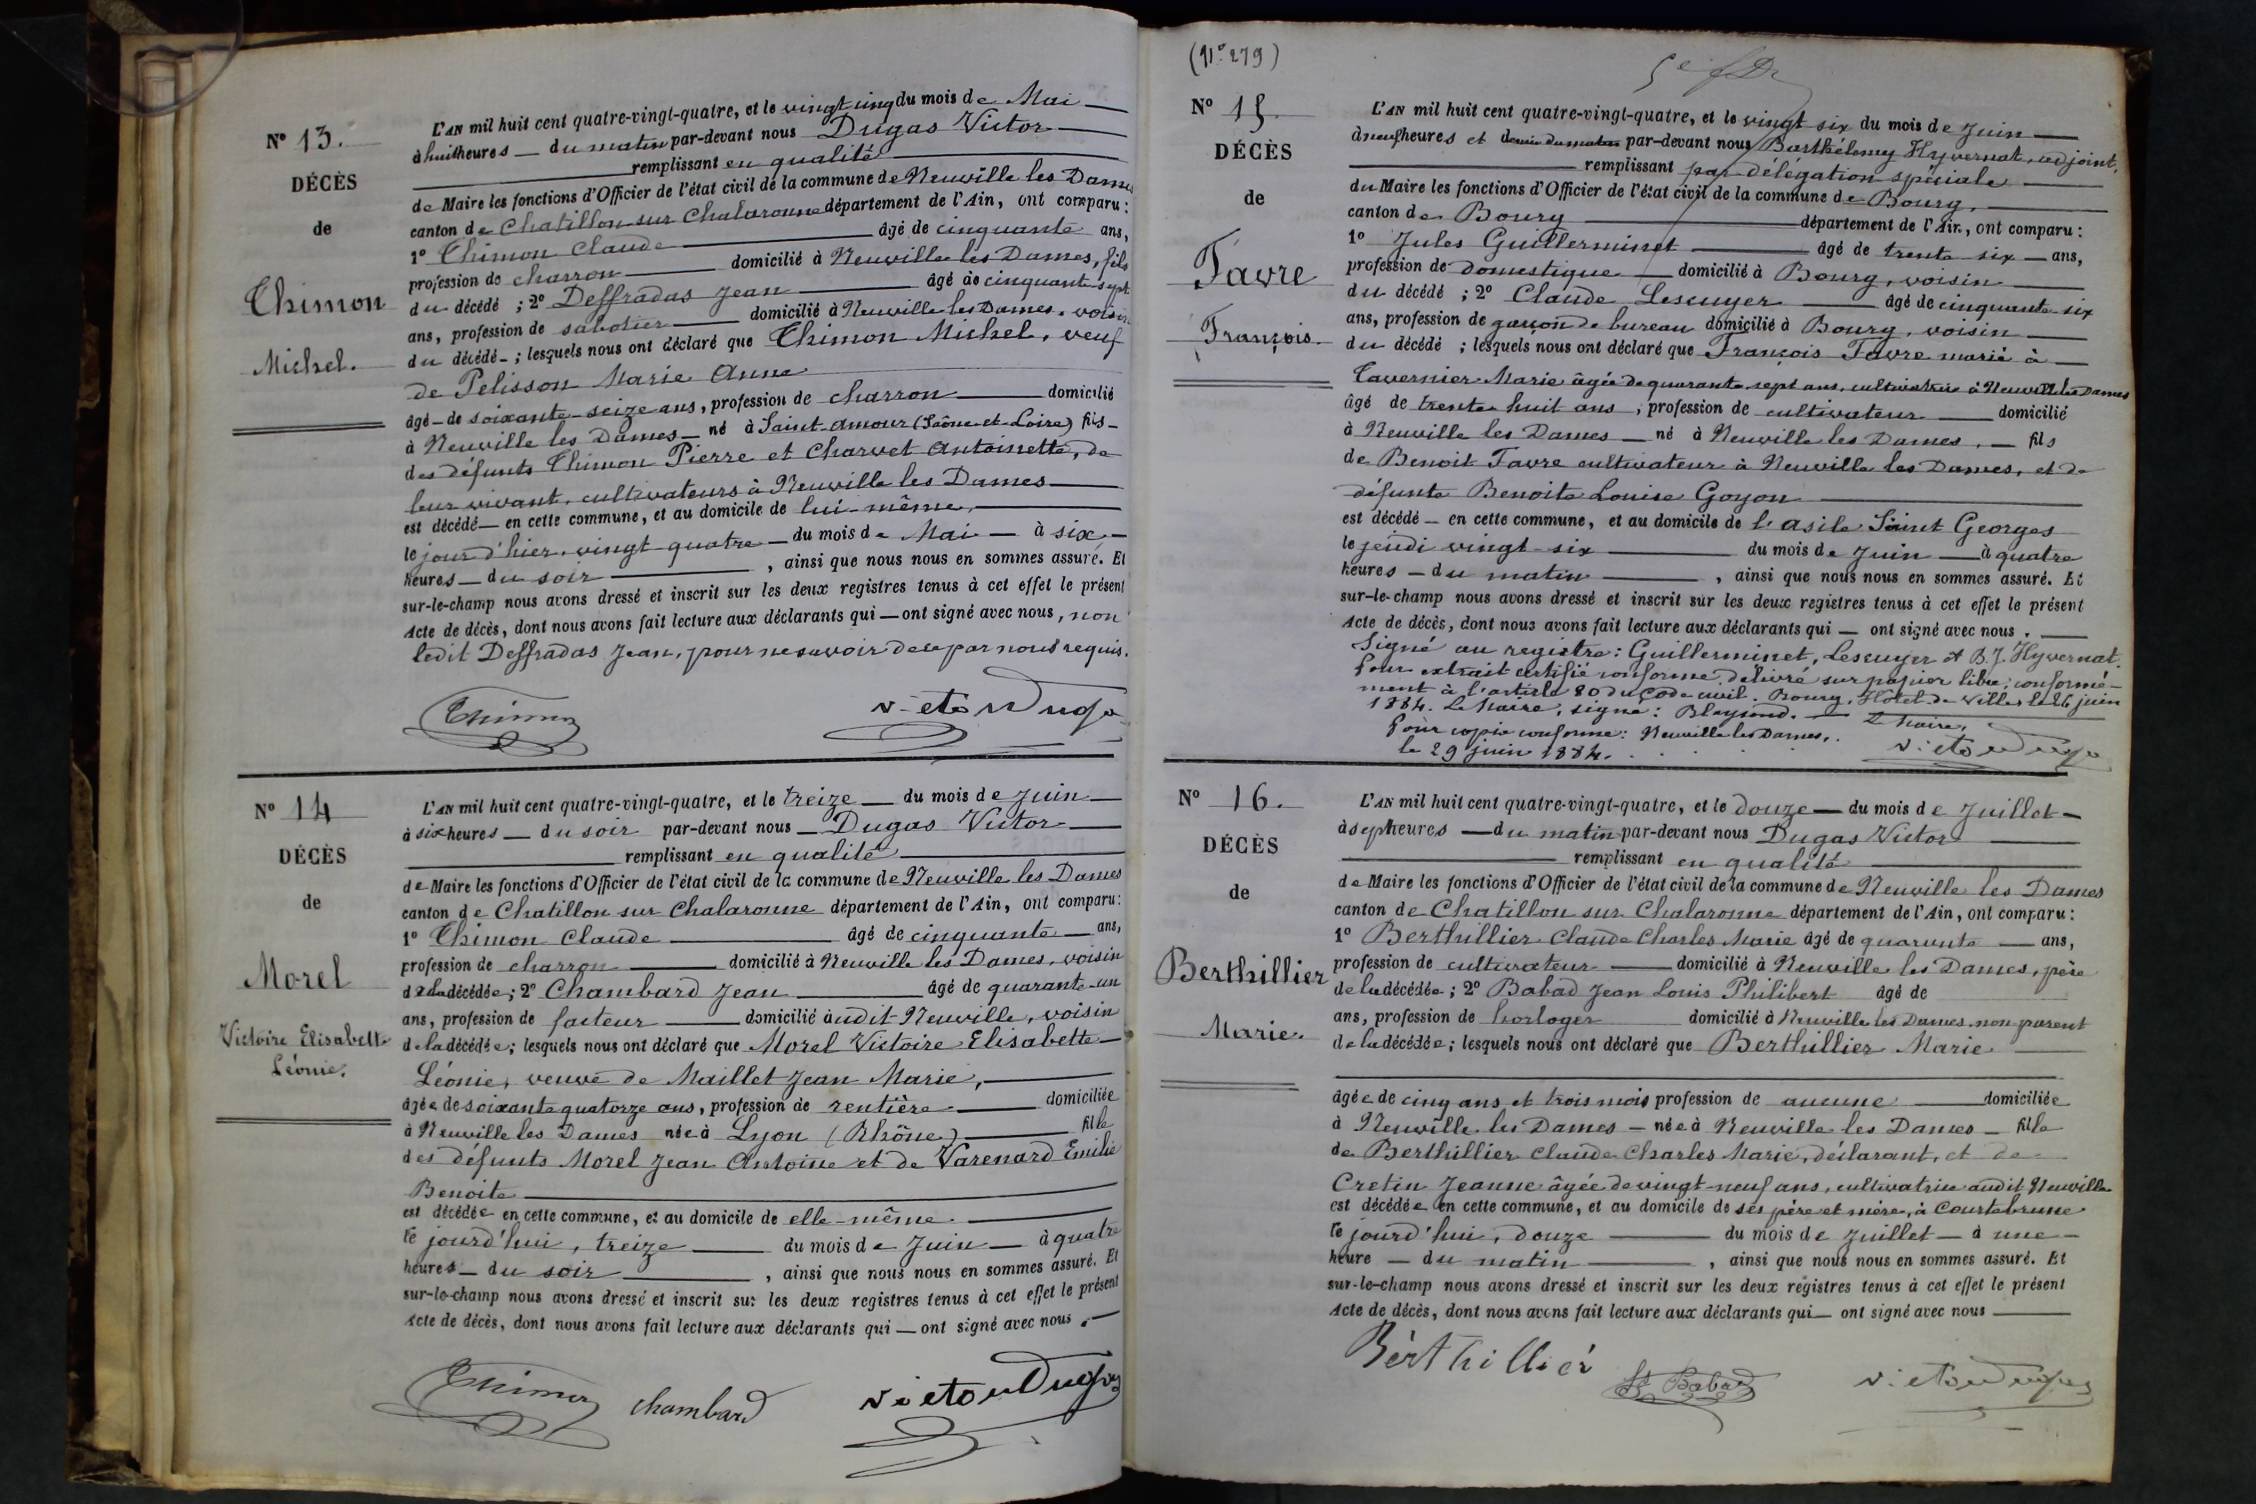 N° 13.
DÉCÈS
de
Thimon
Michel.
L'AN mil huit cent quatre-vingt-quatre, et le vingt cinq du mois de Mai
à huit heures — du matin par-devant nous Dugas Victor
remplissant en qualité
de Maire les fonctions d'Officier de l'état civil de la commune de Neuville les Dames
canton de Chatillon sur Chalaronne département de l'Ain, ont comparu :
1° Thimon Claude âgé de cinquante ans,
profession de charron domicilié à Neuville les Dames, fils
du décédé ; 2° Deffradas Jean âgé de cinquante-sept
ans, profession de sabotier domicilié à Neuville les Dames, voisin
du décédé ; lesquels nous ont déclaré que Thimon Michel, veuf
de Pelisson Marie Anne
âgé de soixante-seize ans, profession de charron domicilié
à Neuville les Dames né à Saint-Amour (Saône-et-Loire) fils
des défunts Thimon Pierre et Charvet Antoinette, de
leur vivant, cultivateurs à Neuville les Dames
est décédé en cette commune, et au domicile de lui-même,
le jour d'hier, vingt-quatre du mois de Mai à six
heures du soir, ainsi que nous nous en sommes assuré. Et
sur-le-champ nous avons dressé et inscrit sur les deux registres tenus à cet effet le présent
Acte de décès, dont nous avons fait lecture aux déclarants qui — ont signé avec nous, non
ledit Deffradas Jean, pour ne savoir de ce par nous requis.
Thimon Victor Dugas
N° 14
DÉCÈS
de
Morel
Victoire Elisabette
Léonie.
L'AN mil huit cent quatre-vingt-quatre, et le treize du mois de Juin
à six heures — du soir par-devant nous Dugas Victor
remplissant en qualité
de Maire les fonctions d'Officier de l'état civil de la commune de Neuville les Dames
canton de Chatillon sur Chalaronne département de l'Ain, ont comparu :
1° Thimon Claude âgé de cinquante ans,
profession de charron domicilié à Neuville les Dames, voisin
de la décédée ; 2° Chambard Jean âgé de quarante-un
ans, profession de facteur domicilié audit Neuville, voisin
de la décédée ; lesquels nous ont déclaré que Morel Victoire Elisabette
Léonie, veuve de Maillet Jean Marie,
âgée de soixante quatorze ans, profession de rentière domiciliée
à Neuville les Dames née à Lyon (Rhône) fille
des défunts Morel Jean Antoine et de Varenard Emilie
Benoite
est décédée en cette commune, et au domicile de elle-même.
le jourd'hui, treize du mois de Juin à quatre
heures du soir, ainsi que nous nous en sommes assuré. Et
sur-le-champ nous avons dressé et inscrit sur les deux registres tenus à cet effet le présent
Acte de décès, dont nous avons fait lecture aux déclarants qui — ont signé avec nous.
Thimon Chambard Victor Dugas
(N° 279)
N° 15.
DÉCÈS
de
Favre
François.
L'AN mil huit cent quatre-vingt-quatre, et le vingt six du mois de Juin
à neuf heures et demie du matin par-devant nous Barthélemy Hyvernat, adjoint,
remplissant par délégation spéciale
du Maire les fonctions d'Officier de l'état civil de la commune de Bourg,
canton de Bourg département de l'Ain, ont comparu :
1° Jules Guillerminet âgé de trente six ans,
profession de domestique domicilié à Bourg, voisin
du décédé ; 2° Claude Lescuyer âgé de cinquante-six
ans, profession de garçon de bureau domicilié à Bourg, voisin
du décédé ; lesquels nous ont déclaré que François Favre marié à
Tavernier Marie âgée de quarante sept ans, cultivatrice à Neuville les Dames
âgé de trente huit ans, profession de cultivateur domicilié
à Neuville les Dames né à Neuville les Dames, fils
de Benoit Favre cultivateur à Neuville les Dames, et de
défunte Benoite Louise Goyon
est décédé en cette commune, et au domicile de l'asile Saint Georges
le jeudi vingt-six du mois de Juin à quatre
heures du matin, ainsi que nous nous en sommes assuré. Et
sur-le-champ nous avons dressé et inscrit sur les deux registres tenus à cet effet le présent
Acte de décès, dont nous avons fait lecture aux déclarants qui — ont signé avec nous.
Signé au registre : Guillerminet, Lescuyer et B. J. Hyvernat.
Pour extrait certifié conforme, délivré sur papier libre, conformé-
ment à l'article 80 du Code civil. Bourg, Hôtel de Ville, le 26 juin
1884. Le Maire, signé :
Pour copie conforme : Neuville les Dames, Le Maire,
le 29 juin 1884. Victor Dugas
N° 16.
DÉCÈS
de
Berthillier
Marie.
L'AN mil huit cent quatre-vingt-quatre, et le douze du mois de Juillet
à sept heures — du matin par-devant nous Dugas Victor
remplissant en qualité
de Maire les fonctions d'Officier de l'état civil de la commune de Neuville les Dames
canton de Chatillon sur Chalaronne département de l'Ain, ont comparu :
1° Berthillier Claude Charles Marie âgé de quarante ans,
profession de cultivateur domicilié à Neuville les Dames, père
de la décédée ; 2° Babad Jean Louis Philibert âgé de
ans, profession de horloger domicilié à Neuville les Dames non parent
de la décédée ; lesquels nous ont déclaré que Berthillier Marie
âgée de cinq ans et trois mois profession de aucune domiciliée
à Neuville les Dames née à Neuville les Dames fille
de Berthillier Claude Charles Marie, déclarant, et de
Cretin Jeanne âgée de vingt-neuf ans, cultivatrice audit Neuville
est décédée en cette commune, et au domicile de ses père et mère, à Courtebrune
le jourd'hui, douze du mois de Juillet à une
heure du matin, ainsi que nous nous en sommes assuré. Et
sur-le-champ nous avons dressé et inscrit sur les deux registres tenus à cet effet le présent
Acte de décès, dont nous avons fait lecture aux déclarants qui — ont signé avec nous
Berthillier Ls Babad Victor Dugas